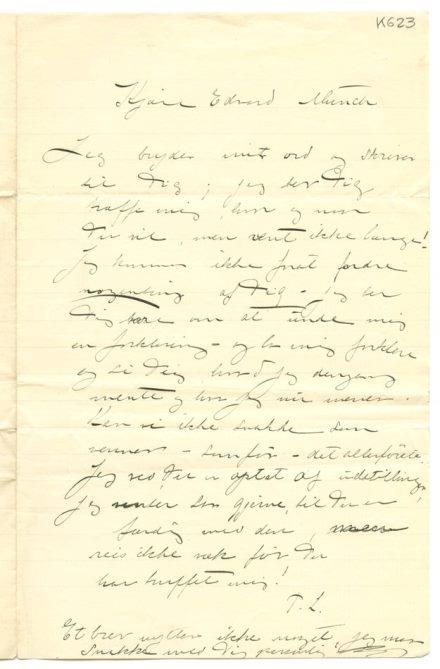 K623
Kjære Edvard Munch
Jeg bryder mit ord og skriver
til Dig; jeg ber Dig
træffe mig, hvor og naar
Du vil, men vent ikke længe!
Jeg kommer ikke for at fordre
nogenting af Dig – jeg ber
Dig bare om at unde mig
en forklaring – og la mig forklare
og si Dig hvad jeg dengang
mente og hvad jeg nu mener.
Kan vi ikke snakke som
venner – som før – det allerførste.
Jeg ved Du er optat af udstilling,
jeg venter saa gjerne, til Du er
færdig med den,
reis ikke væk før Du
har truffet mig!
T. L.
Et brev nytter ikke noget, jeg maa
snakke med Dig personlig